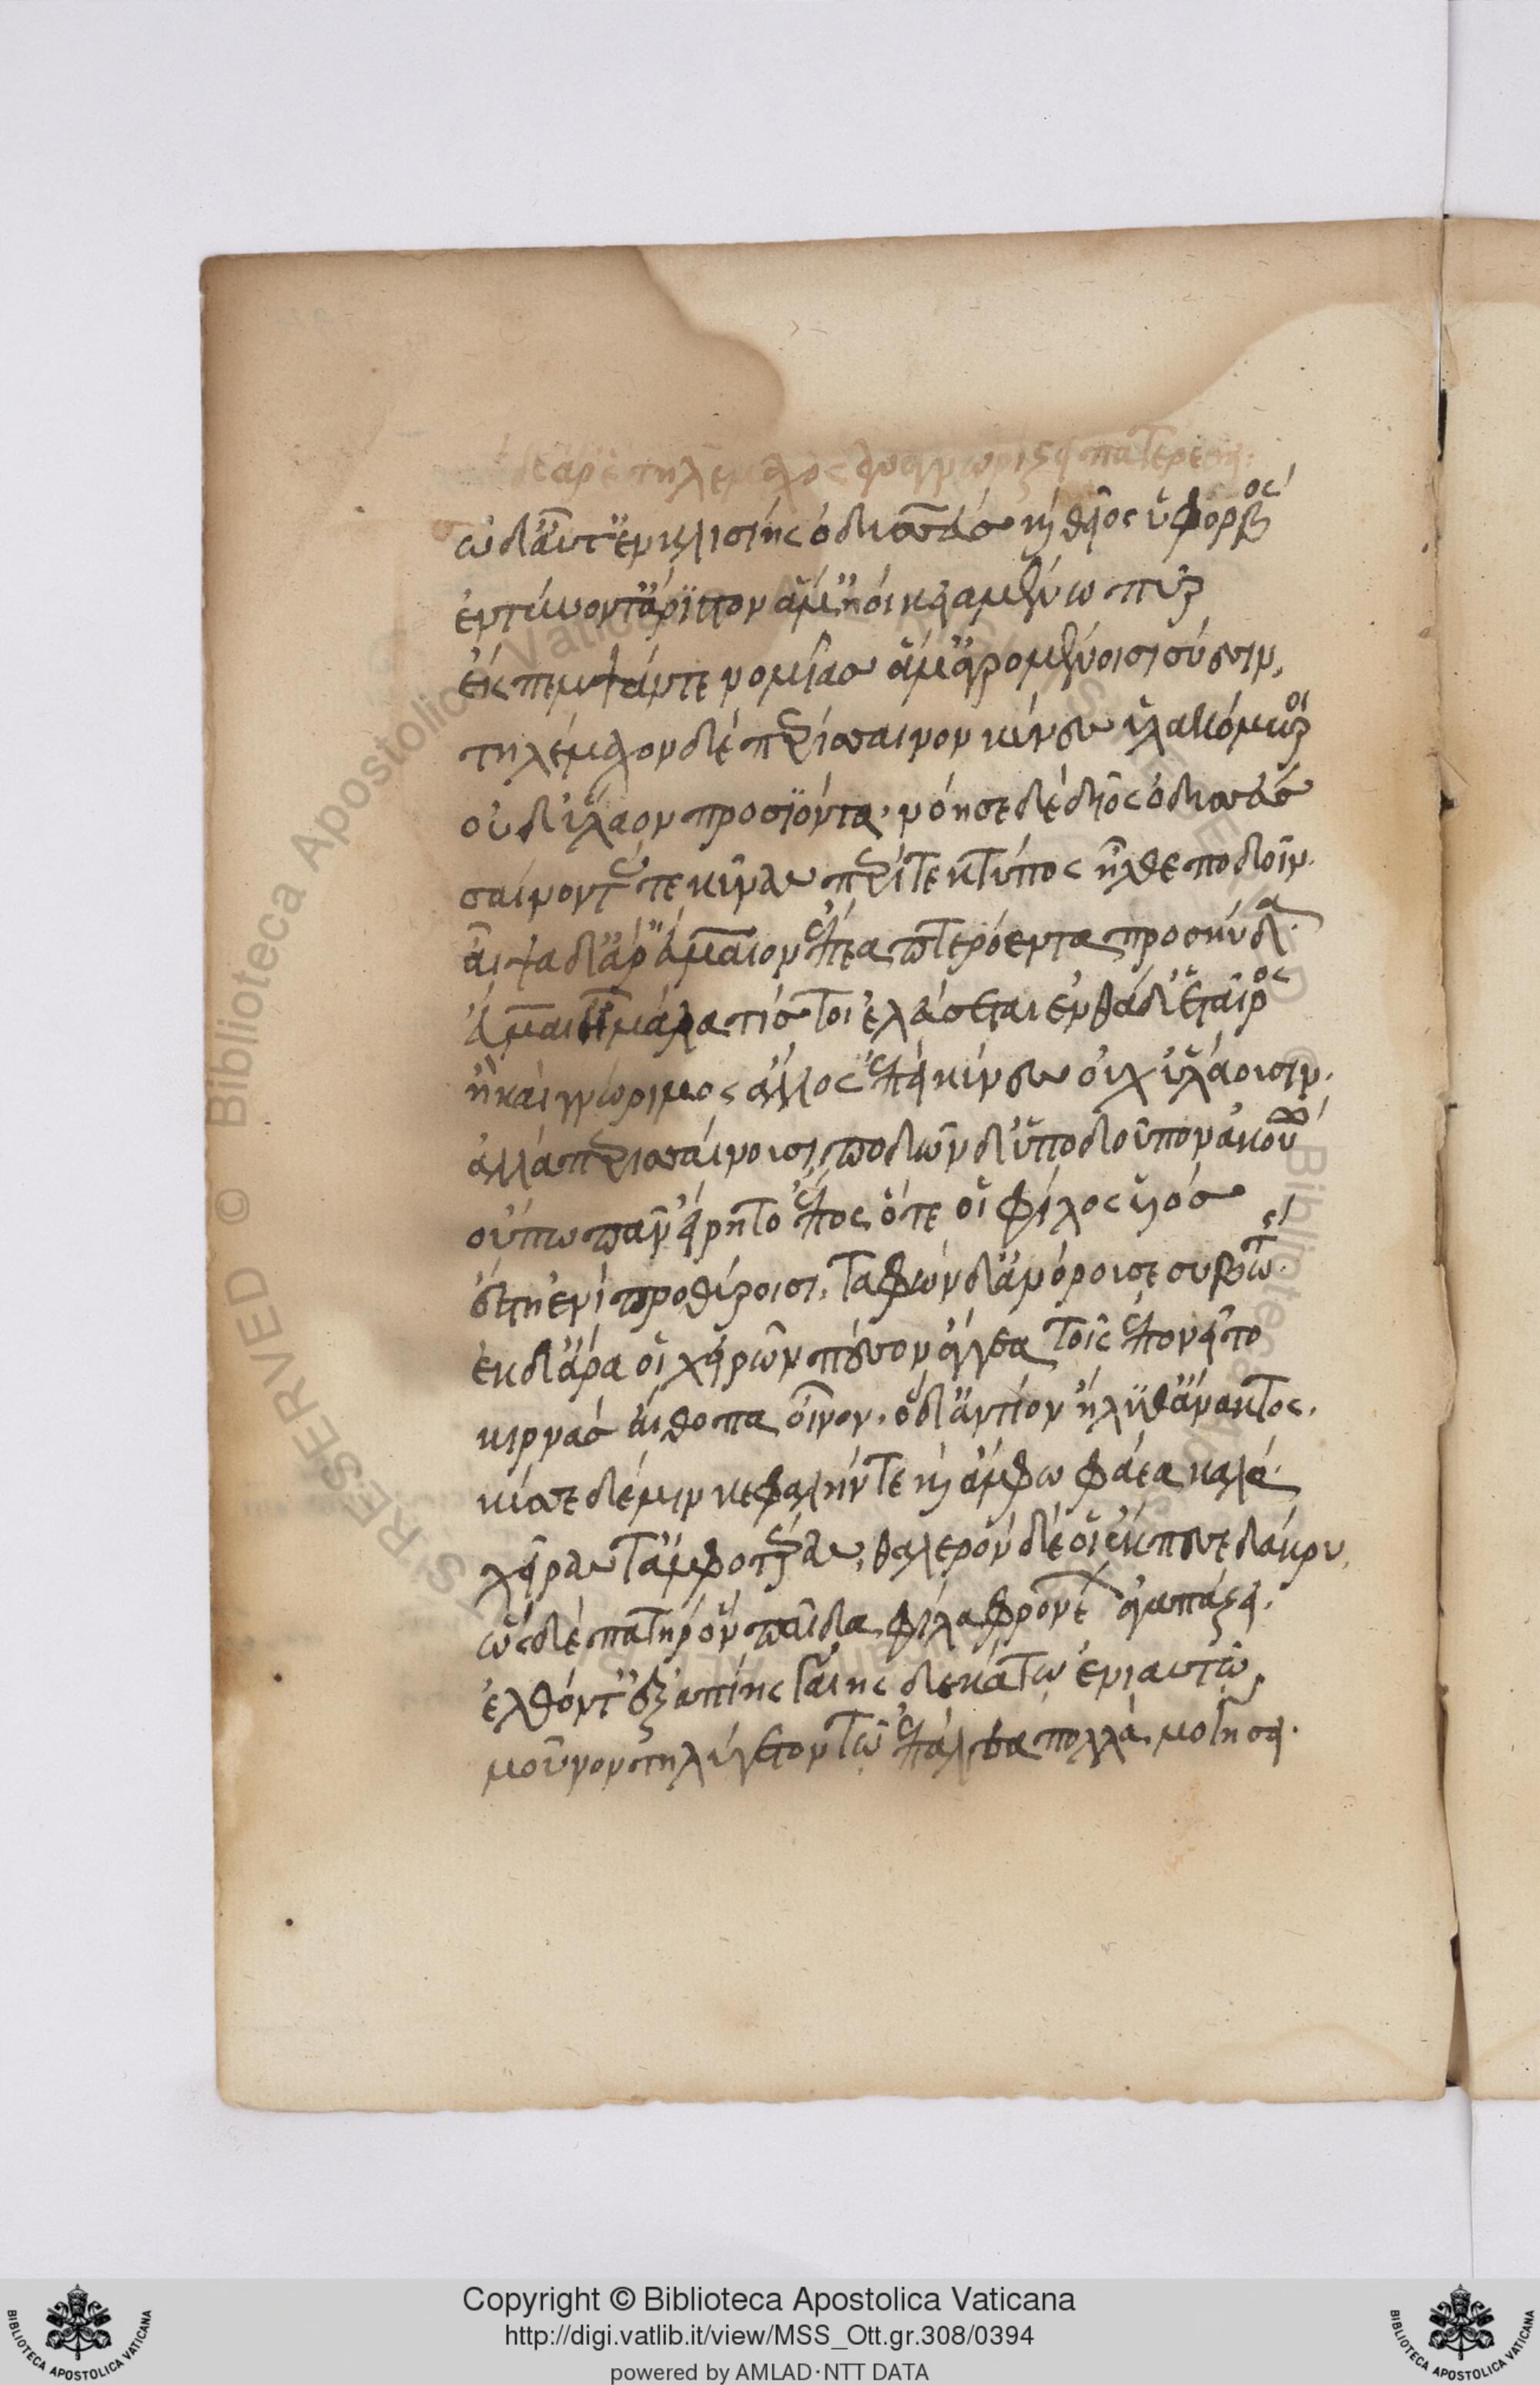 δὲ ἄρε τηλέμαχος ἀναγνωρίζει πατέρ
τὼ δ' αὖτ' ἐν κλισίης ὀδυσσεὺς καὶ θεῖος ὑφορβός
ἐντύνοντ' ἄριστον ἅμ' ἠοῖ κειαμένω πῦρ
ἔκπεμψάν τε νομῆας ἅμ' ἀγρομένοισι σύεσσιν,
τηλέμαχον δὲ περίσσαινον κύνες ὑλακόμωροι
οὐδ' ὕλαον προσϊόντα· νόησε δὲ δῖος ὀδυσσεύς
σαίνοντάς τε κύνας περί τε κτύπος ἦλθε ποδοῖιν.
αἶψα δ' ἄρ' εὔμαιον ἔπεα πτερόεντα προσηύδα.
εὔμαι' ἦ μάλα τίς τοι ἐλεύσεται ἐνθάδ' ἑταῖρος
ἢ καὶ γνώριμος ἄλλος ἐπεὶ κύνες οὐχ ὑλάουσιν.
ἀλλὰ περισσαίνουσι, ποδῶν δ' ὕπο δοῦπον ἀκούω
οὔπω πᾶν εἴρητο ἔπος, ὅτε οἱ φίλος υἱός
ἔστη ἐνὶ προθύροισι, ταφὼν δ' ἀνόρουσε συβώτης
ἐκ δ' ἄρα οἱ χειρῶν πέσον ἄγγεα τοῖς ἐπονεῖτο
κιρνὰς αἴθοπα οἶνον. ὁ δ' ἀντίον ἤλυθ' ἄνακτος.
κύσσε δέ μιν κεφαλήν τε καὶ ἄμφω φάεα καλά
χεῖράς τ' ἀμφοτέρας, θαλερὸν δέ οἱ ἔκπεσε δάκρυ,
ὡς δὲ πατὴρ ὃν παῖδα φίλα φρονέων ἀγαπάζει.
ἐλθόντ' ἐξ ἀπίης γαίης δεκάτω ἐνιαυτῶ,
μοῦνον τηλύγετον τῷ ἔπ' ἄλγεα πολλὰ μογήσει.
Copyright © Biblioteca Apostolica Vaticana
http://digi.vatlib.it/view/MSS_Ott.gr.308/0394
powered by AMLAD·NTT DATA